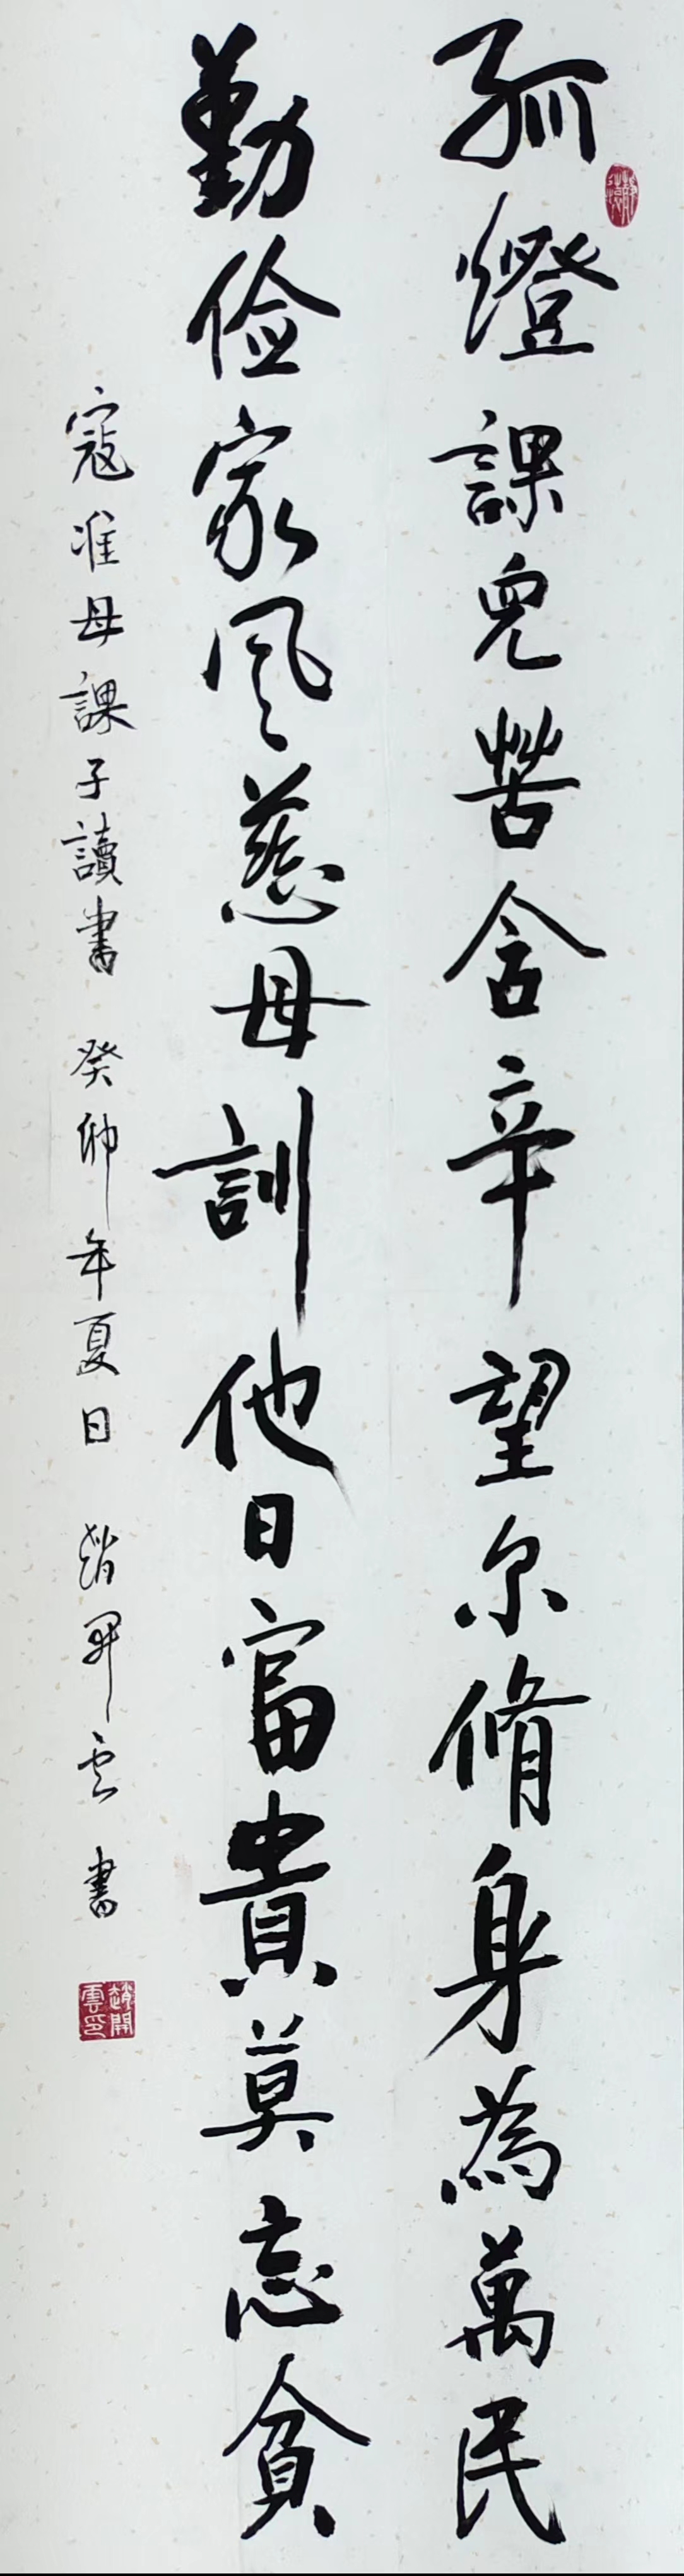 孤燈課兒苦含辛望尔脩身為萬民
勤俭家风慈母訓他日富貴莫忘貧
寇准母課子讀書 癸卯年夏日 趙開云書
趙開雲印